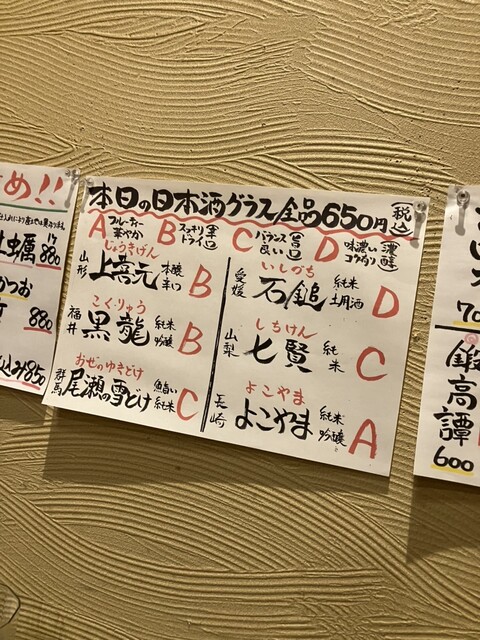 め!!
牡蠣 880
かつお
880
込み 850
本日の日本酒グラス全品650円 税込
A フルーティー 華やか B スッキリ ドライ 辛口 C バランス 良い 旨口 D 味濃い コクあり 濃醇
じょうきげん
山形 上喜元 本醸 辛口 B
こくりゅう
福井 黒龍 純米 吟醸 B
おぜのゆきどけ
群馬 尾瀬の雪どけ 純米 C
いしづち
愛媛 石鎚 純米 土用酒 D
しちけん
山梨 七賢 純米 C
よこやま
長崎 よこやま 純米 吟醸 A
70
鍛高譚
600